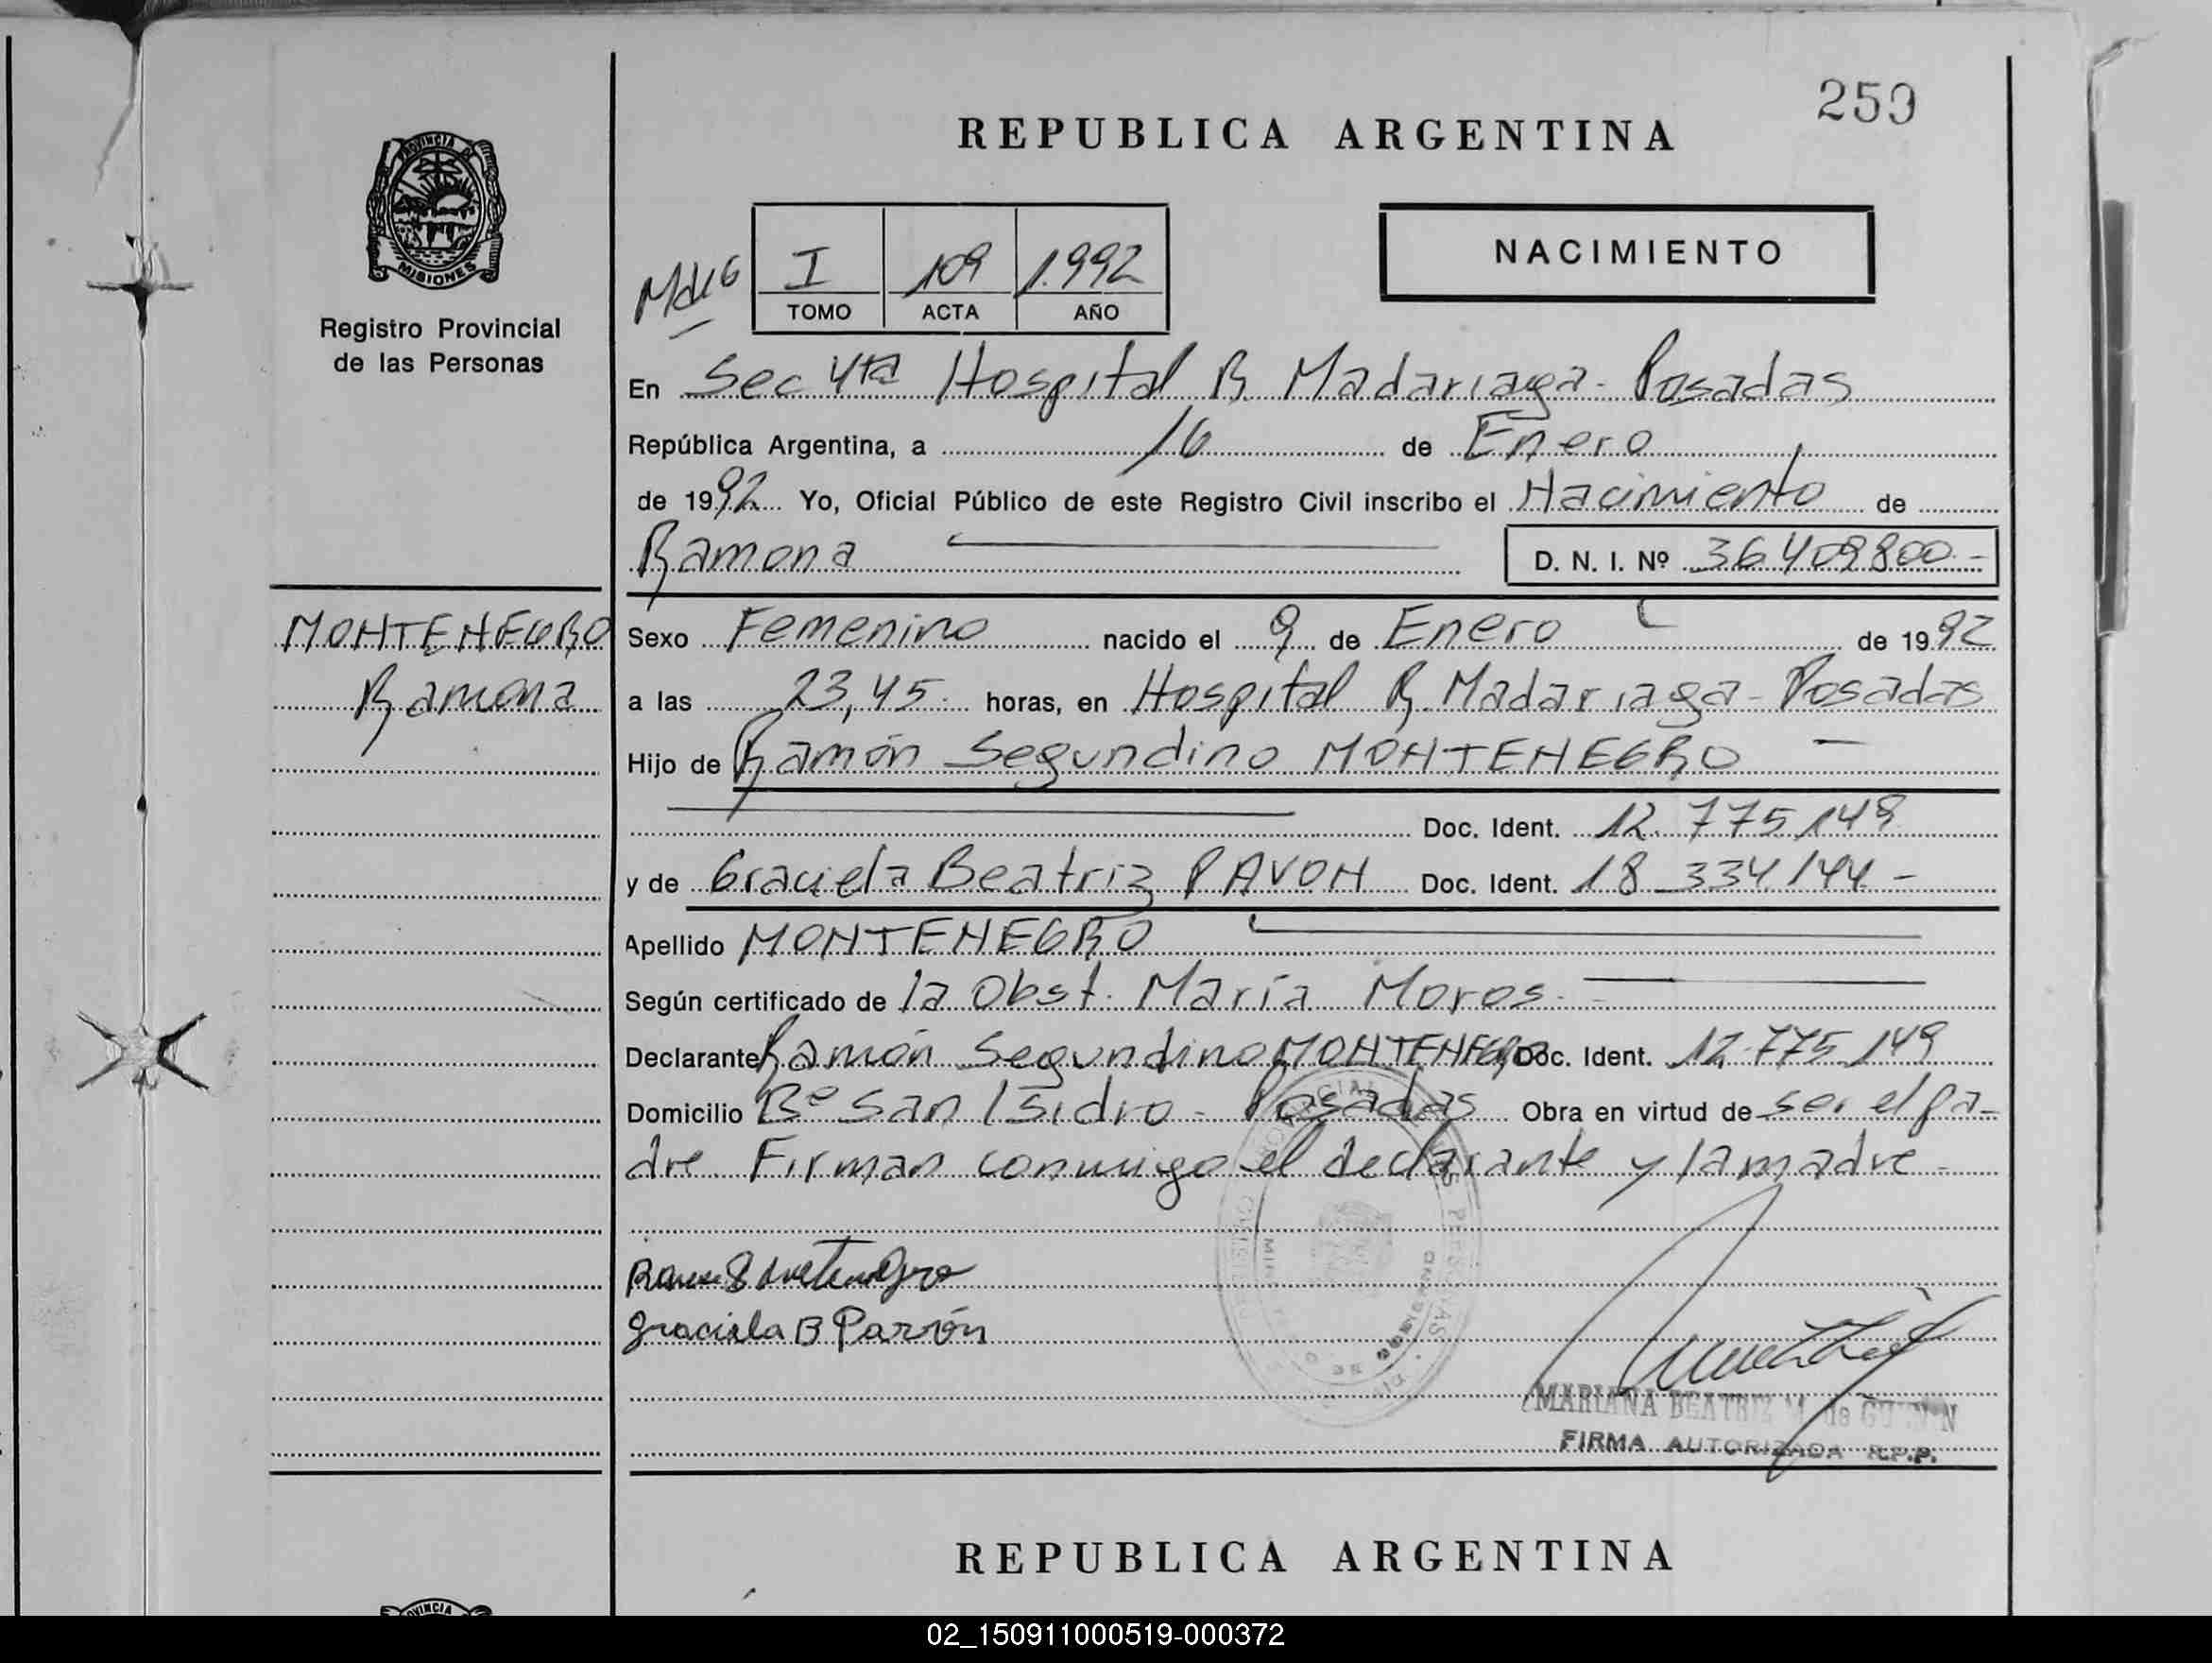 259
REPUBLICA ARGENTINA
PROVINCIA DE
MISIONES
Registro Provincial
de las Personas
I 109 1.992
TOMO ACTA AÑO
NACIMIENTO
En Sec 4ta Hospital R. Madariaga - Posadas
República Argentina, a 16 de Enero
de 1992 Yo, Oficial Público de este Registro Civil inscribo el Nacimiento de
Ramona D. N. I. Nº 36409800-
MONTENEGRO
Ramona
Sexo Femenino nacido el 9 de Enero de 1992
a las 23,45 horas, en Hospital R. Madariaga - Posadas
Hijo de Ramón Segundino MONTENEGRO -
Doc. Ident. 12.775.149
y de Graciela Beatriz PAVON Doc. Ident. 18.334.144-
Apellido MONTENEGRO
Según certificado de la Obst. María Moros
Declarante Ramón Segundino MONTENEGRO Doc. Ident. 12.775.149
Domicilio Bº San Isidro - Posadas Obra en virtud de ser el pa-
dre Firman conmigo el declarante y la madre-
Graciela B Parrón
MARIANA BEATRIZ M. de
FIRMA AUTORIZADA R.P.P.
REPUBLICA ARGENTINA
02_150911000519-000372